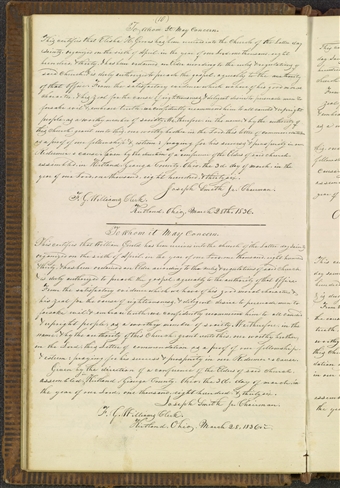 (16)
To whom It May Concern
This certifies that Elisha H. Groves has been received into the Church of the latter day
Saints, organized on the sixth of April, in the year of our Lord one thousand eight
hundred & thirty, & has been ordained an Elder according to the rules & regulations of
said Church, & is duly authorized to preach the gospel, agreeably to the authority
of that office. From the satisfactory evidence which we have of his good moral
character, & his zeal for the cause of righteousness, & diligent desire to persuade men to
forsake evil & embrace truth, we confidently recommend him to all candid & upright
people as a worthy member of society. We therefore, in the name, & by the authority of
this church, grant unto this, our worthy brother in the Lord, this letter of commendation
as a proof of our fellowship & esteem: praying for his success & prosperity in our
Redeemer's cause. Given by the direction of a conference of the Elders of said church
assembled in Kirtland, Geauga County, Ohio, the 3d. day of March, in the
year of our Lord, one thousand, eight hundred, & thirty six.
Joseph Smith Jr. Chairman.
F. G. Williams, Clerk.
Kirtland, Ohio, March 28th, 1836.
To whom it May Concern.
This certifies that William Gould has been received into the church of the latter day saints,
organized on the sixth of April, in the year of our Lord one thousand eight hundred
& thirty, & has been ordained an Elder according to the rules & regulations of said church
& is duly authorized to preach the gospel, agreeably to the authority of that office.
From the satisfactory evidence which we have of his good moral character, &
his zeal for the cause of righteousness, & diligent desire to persuade men to
forsake evil & embrace truth, we confidently recommend him to all candid
& upright people as a worthy member of society. We therefore, in the
name, & by the authority of this church, grant unto this, our worthy brother
in the Lord, this letter of commendation as a proof of our fellowship
& esteem: praying for his success & prosperity in our Redeemer's cause.
Given by the direction of a conference of the Elders of said church
assembled in Kirtland, Geauga County, Ohio, the 3d. day of March, in
the year of our Lord, one thousand, eight hundred, & thirty six.
Joseph Smith Jr. Chairman.
F. G. Williams, Clerk.
Kirtland, Ohio, March 28, 1836.